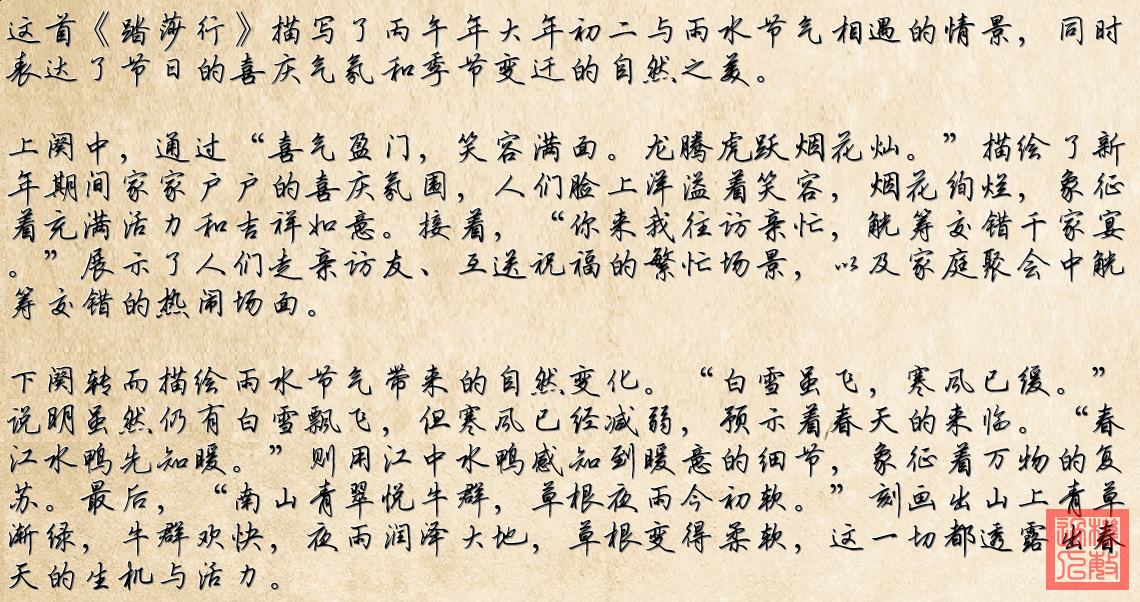 这首《踏莎行》描写了丙午年大年初二与雨水节气相遇的情景，同时
表达了节日的喜庆气氛和季节变迁的自然之美。
上阕中，通过“喜气盈门，笑容满面。龙腾虎跃烟花灿。”描绘了新
年期间家家户户的喜庆氛围，人们脸上洋溢着笑容，烟花绚烂，象征
着充满活力和吉祥如意。接着，“你来我往访亲忙，觥筹交错千家宴
。”展示了人们走亲访友、互送祝福的繁忙场景，以及家庭聚会中觥
筹交错的热闹场面。
下阕转而描绘雨水节气带来的自然变化。“白雪虽飞，寒风已缓。”
说明虽然仍有白雪飘飞，但寒风已经减弱，预示着春天的来临。“春
江水鸭先知暖。”则用江中水鸭感知到暖意的细节，象征着万物的复
苏。最后，“南山青翠悦牛群，草根夜雨今初软。”刻画出山上青草
渐绿，牛群欢快，夜雨润泽大地，草根变得柔软，这一切都透露出春
天的生机与活力。